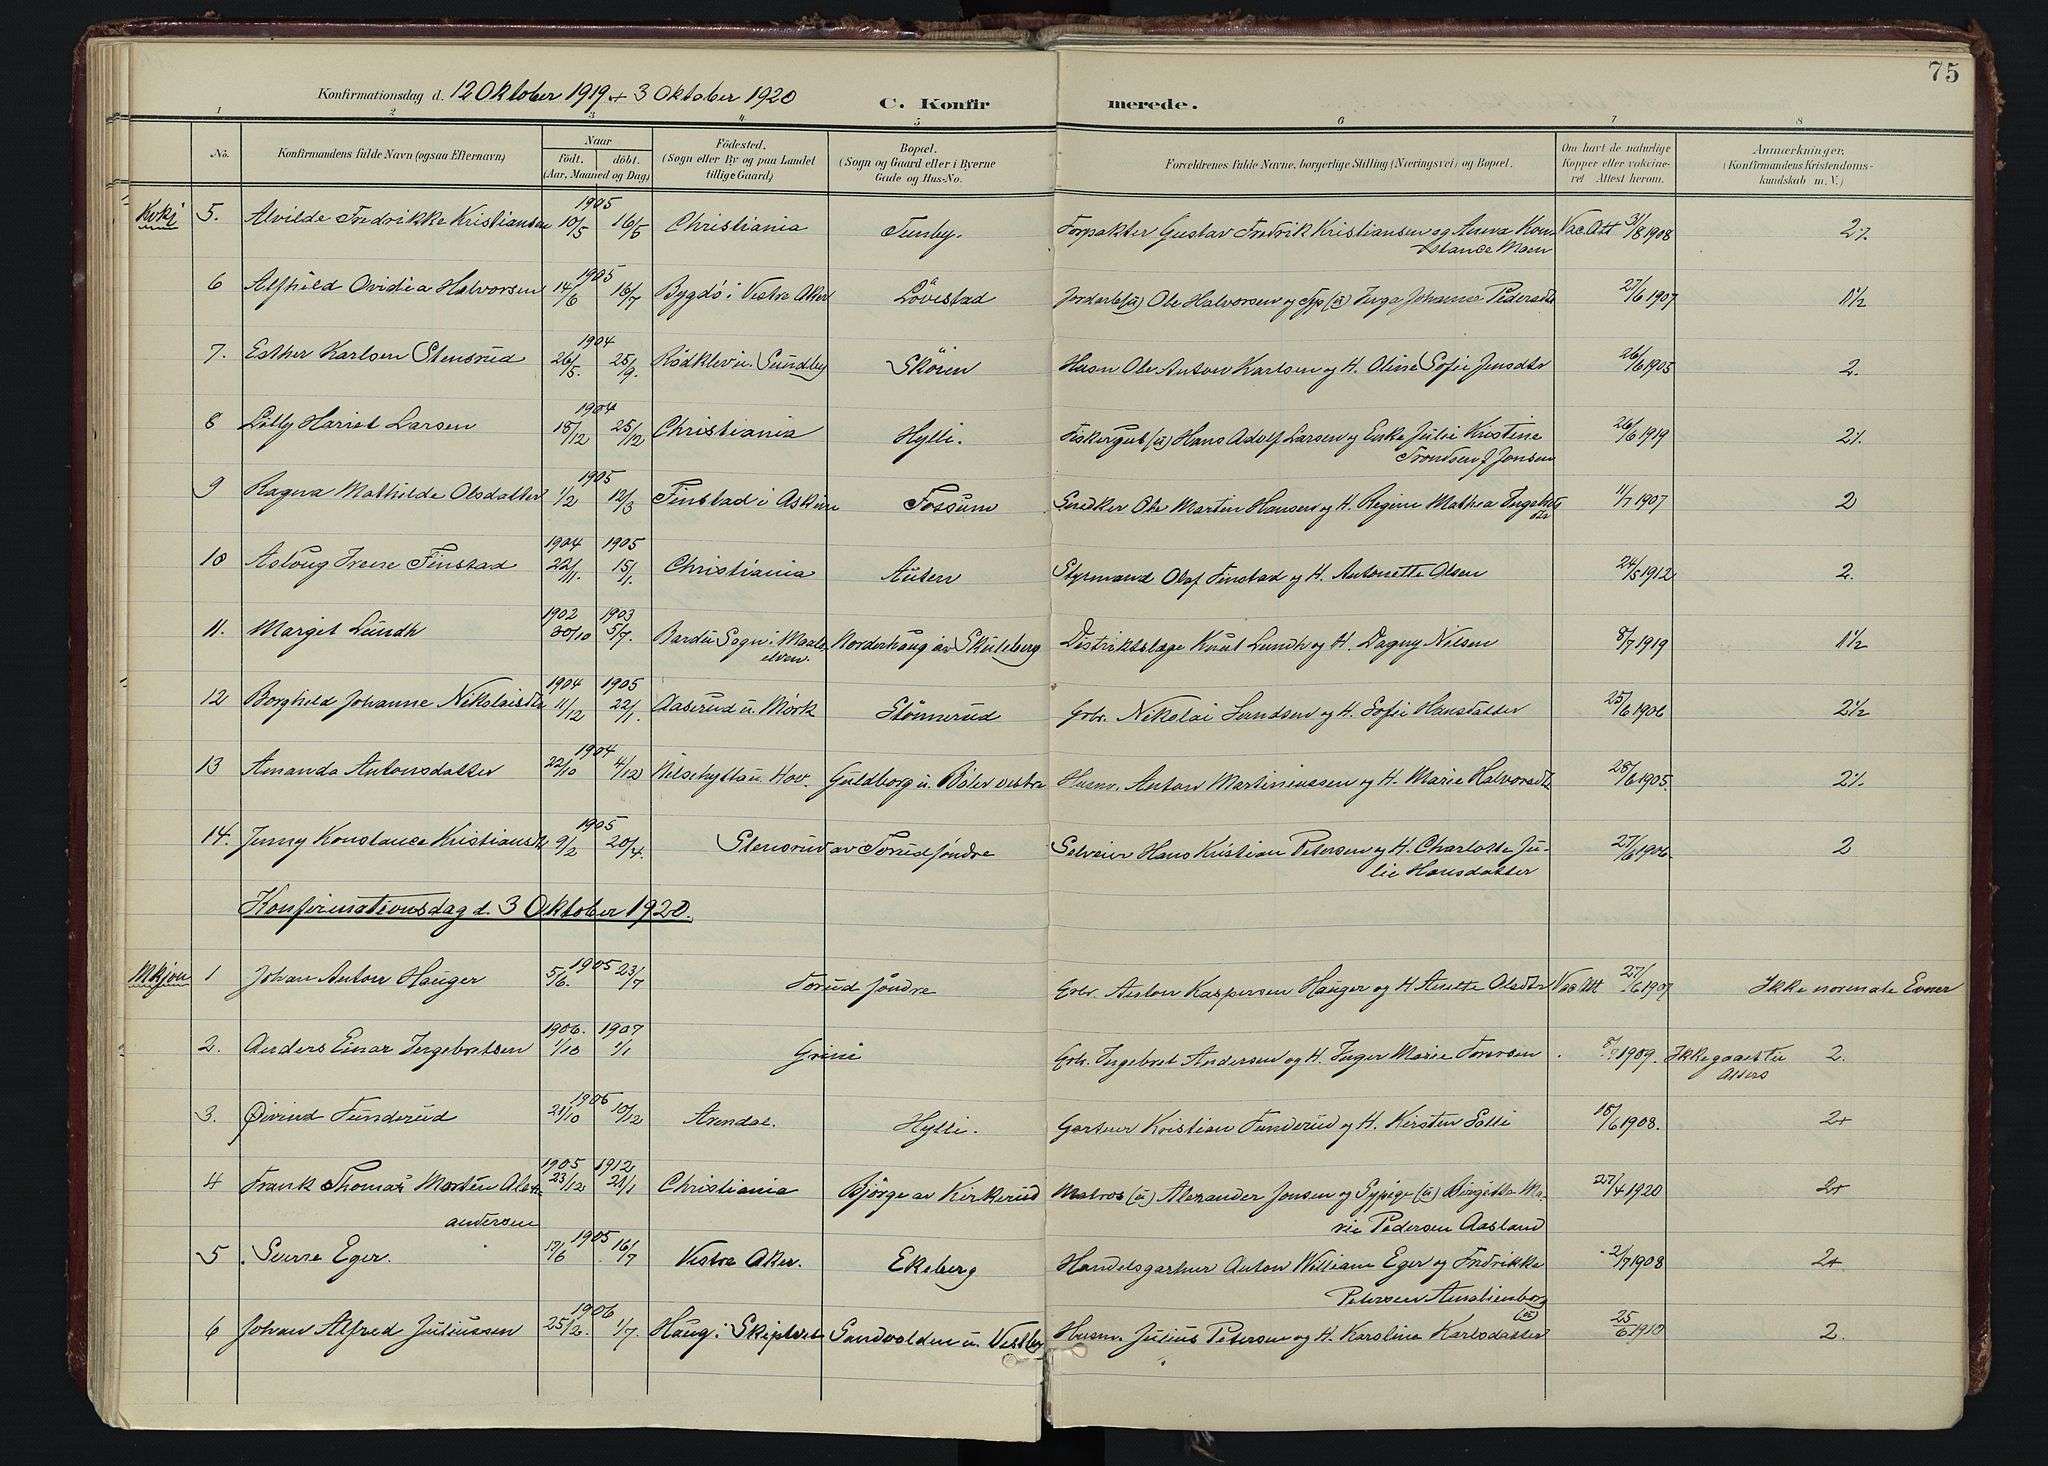 75
Konfirmationsdag d. 12 Oktober 1919 + 3 Oktober 1920 C. Konfirmerede.
1 2 3 4 5 6 7 8
No. Konfirmandens fulde Navn (ogsaa Efternavn) Naar født. døbt. (Aar, Maaned og Dag) Fødested. (Sogn eller By og paa Landet tillige Gaard) Bopæl. (Sogn og Gaard eller i Byerne Gade og Hus-No. Forældrenes fulde Navne, borgerlige Stilling (Næringsvei) og Bopæl. Om havt de naturlige Kopper eller vakcineret Attest herom. Anmærkninger. (Konfirmandens Kristendomskundskab m. V.)
5. Alvilde Fredrikke Kristiansen 1905 10/5 16/5 Christiania Tenby. Forpakter Gustav Fredrik Kristiansen og Anna Konstance Moen Vac. Att 31/8 1908 2%
6 Alfhild Ovidia Halvorsen 1905 14/6 16/7 Bygdö i Vestre Aker Lövestad Jordarb (u) Ole Halvorsen og Typ (u) Inga Johanne Pedersdt 27/6 1907 1 1/2
7. Esther Karlsen Stensrud 1904 26/5. 25/9. Rödklev u. Sundby Sköien Husm Ole Anton Karlsen og H. Oline Sofie Jensdtr 26/6 1905 2.
8 Lilly Hariet Larsen 1904 18/12 25/12 Christiania Hylli. Fiskergut (u) Hans Adolf Larsen og Enke Julie Kristine Trondsen f Jonsen 26/6 1919 2%
9 Ragna Mathilde Olsdatter 1905 1/2 12/3 Finstad i Askim Fossum Snedker Ole Martin Hansen og H. Regine Mathea Ingebrtsdtr 11/7 1907 2
10 Aslaug Irene Finstad 1904 22/11. 1905 15/1. Christiania Auten Styrmand Olaf Finstad og H. Antonette Olsen 24/5 1912 2.
11. Margit Lundh 1902 30/10 1903 5/7. Bardu Sogn i Maalselven. Norderhaug av Skuleberg Distriktslæge Knut Lundh og H. Dagny Nilsen 8/7 1919 1 1/2
12 Borghild Johanne Nikolaisdtr 1904 11/12 1905 22/1. Aaserud u. Mörk Stömnerud Grbr. Nikolai Syndsen og H. Sofie Hansdatter 25/6 1906 2 1/2
13 Amanda Antonsdatter 1904 22/10 4/12 Nilsehytta u. Hov. Guldborg u. Böler vestre Husm. Anton Martiniussen og H. Marie Halvorsdtr 28/6 1905 2%
14. Jenny Konstance Kristiansdtr 1905 9/2 20/4. Stensrud av Torud söndre Selveier Hans Kristian Petersen og H. Charlotte Julie Hansdatter 27/6 1906 2
Konfirmationsdag d. 3 Oktober 1920.
1 Johan Anton Hauger 1905 5/6. 23/7 Torud söndre Grbr. Anton Kaspersen Hauger og H Anette Olsdtr Vac Att 27/6 1907 Ikke normale Evner
2. Anders Einar Ingebretsen 1906. 1/10 1907 1/1 Grini Grbr. Ingebret Andersen og H. Inger Marie Torersen 1909. Ikke gaaet til Alters 2.
3. Øivind Funderud 1905 21/10 10/12 Arendal. Hylli. Gartner Kristian Funderud og H. Kirsten Solli 18/6 1908. 2+
4 Frank Thomas Morten Alexandersen 1905 23/12 1912 21/1 Christiania Bjørge av Kirkerud Matros (u) Alexander Jonsen og Sypige (u) Birgitta Marie Pedersen Aasland 27/4 1920 2+
5 Sverre Eger. 1905 17/6 16/7 Vestre Aker. Ekeberg Handelsgartner Anton William Eger og Fredrikke Petersen Amalienborg 2/7 1908 2+
6 Johan Alfred Juliussen 1906 25/2. 1/7 Haug i Skiptvet Sandvolden u. Vestby Husm. Julius Petersen og H. Karoline Karlsdatter 25/6 1910 2.